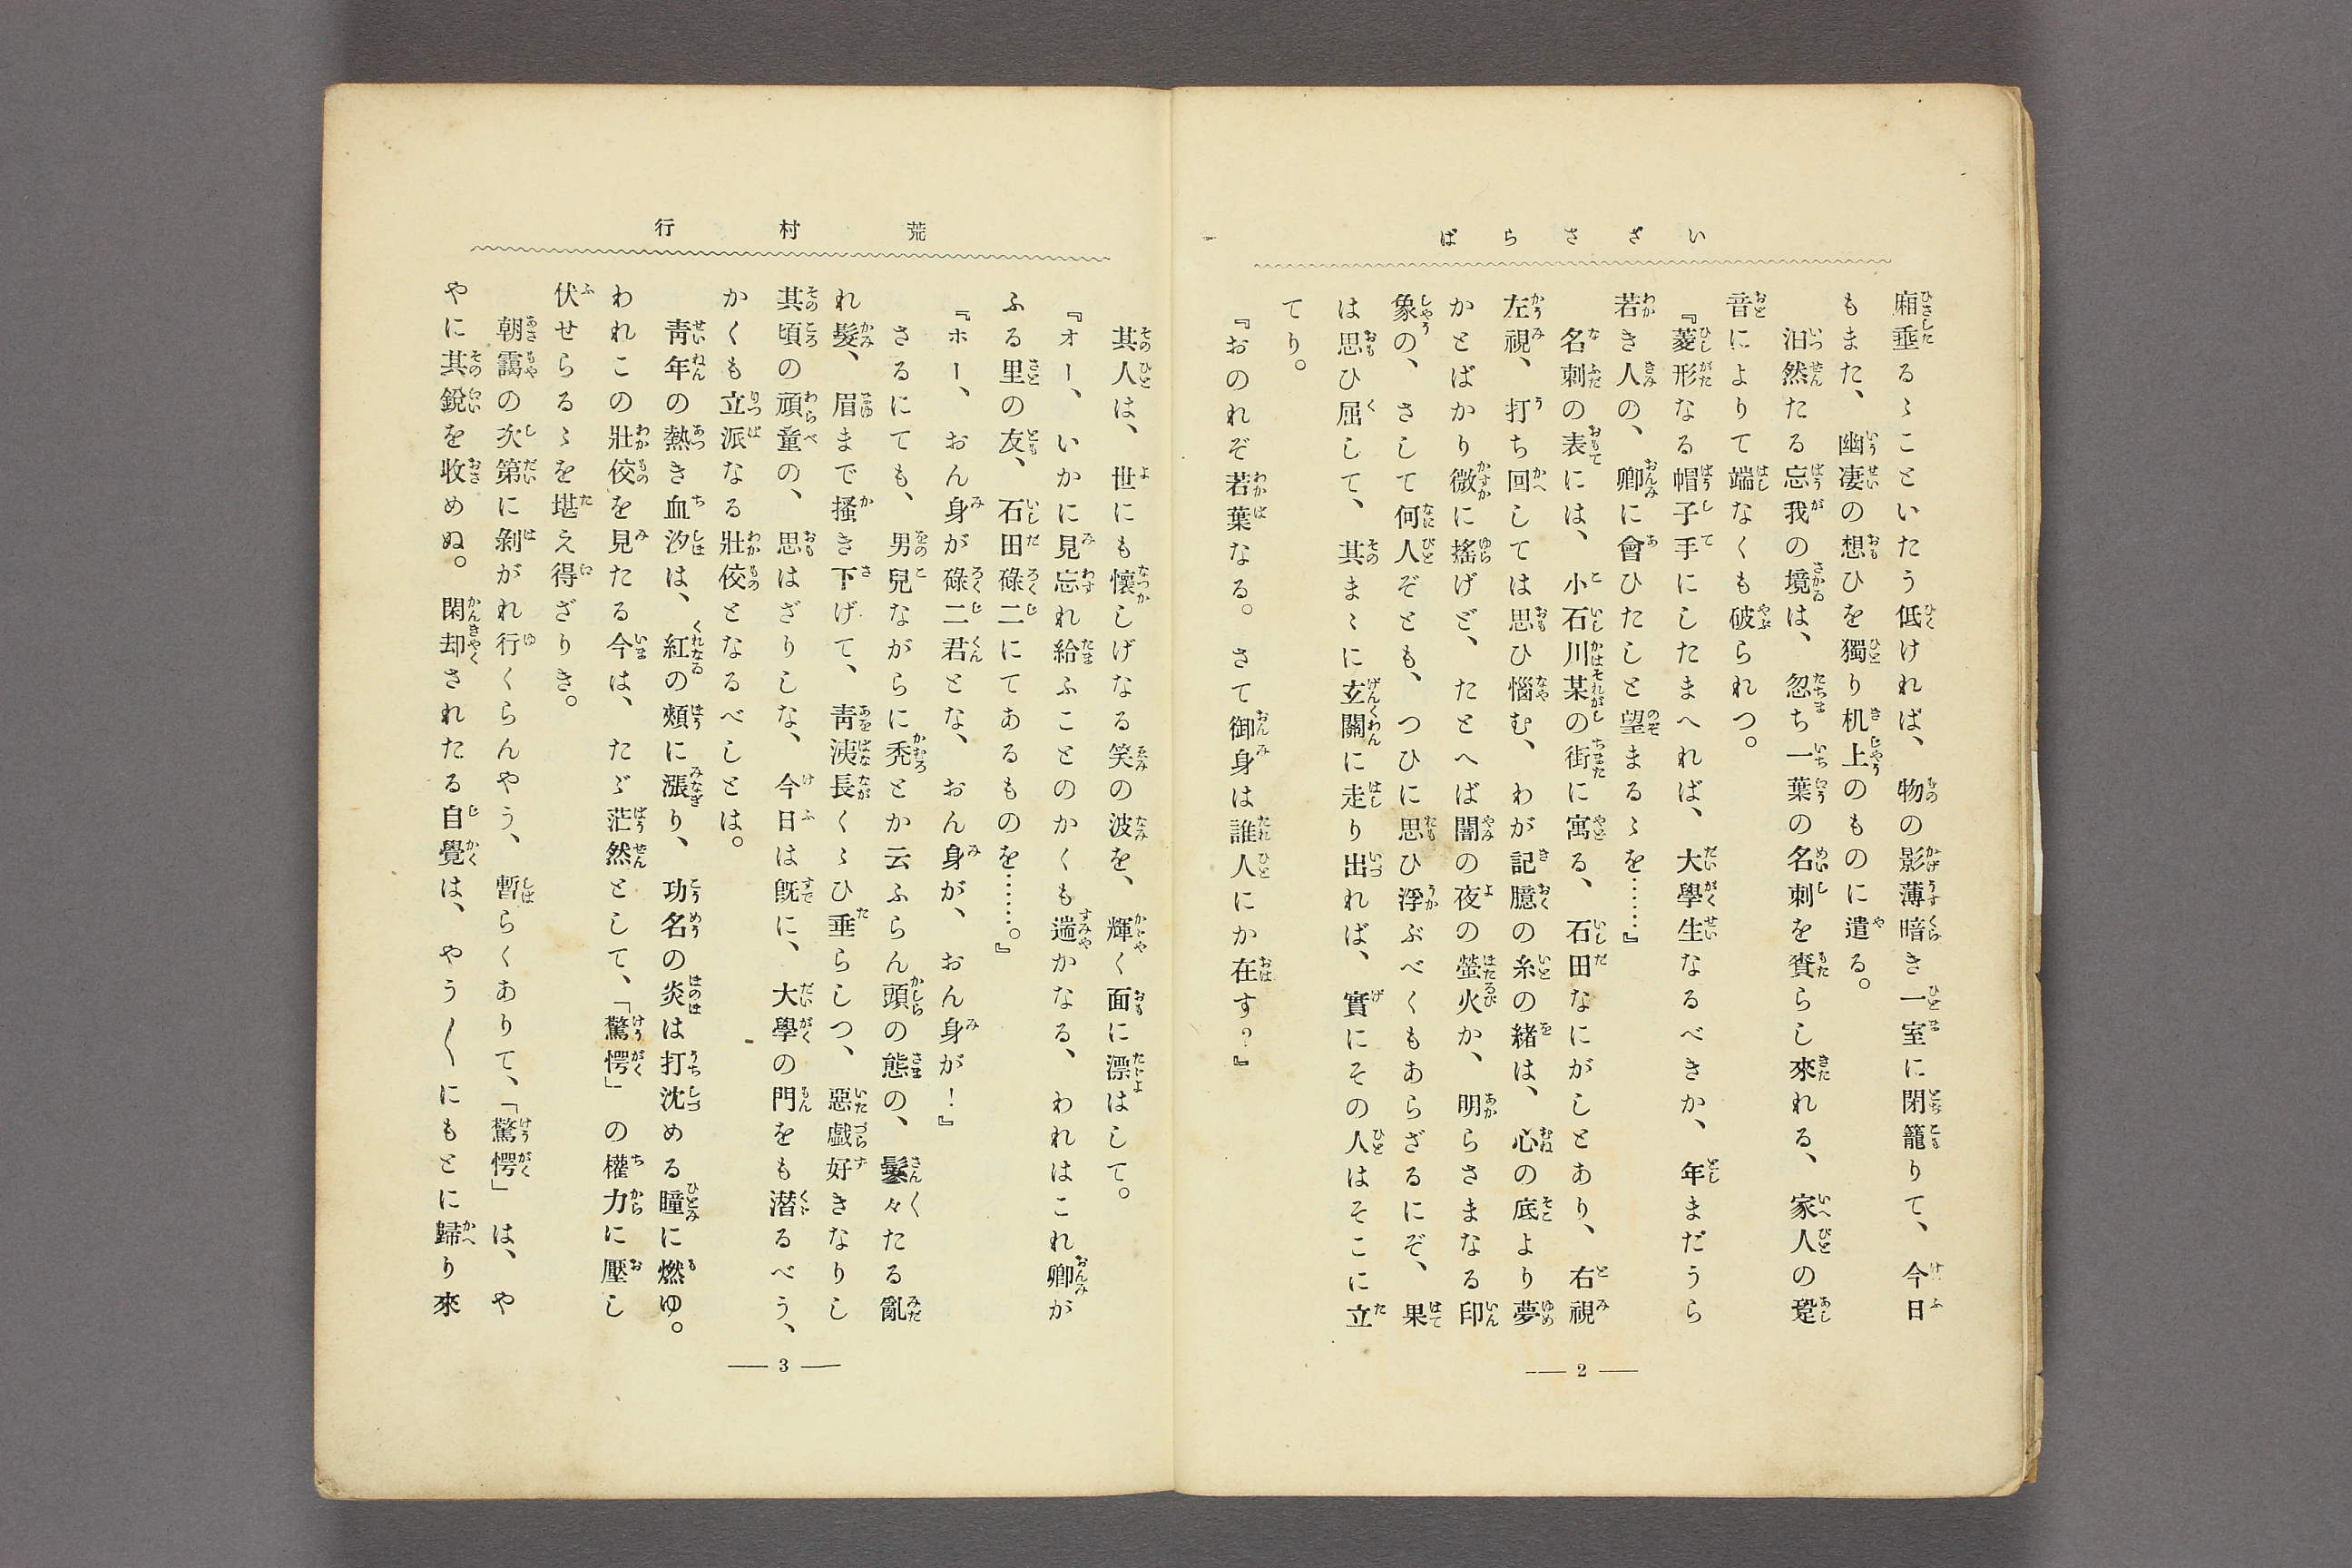 いざさらば
廂垂るゝこといたう低ければ、物の影薄暗き一室に閉籠りて、今日
もまた、幽凄の想ひを獨り机上のものに遣る。
汨然たる忘我の境は、忽ち一葉の名刺を賚らし來れる、家人の跫
音によりて端なくも破られつ。
『菱形なる帽子手にしたまへれば、大學生なるべきか、年まだうら
若き人の、卿に會ひたしと望まるゝを……』
名刺の表には、小石川某の街に寓る、石田なにがしとあり、右視
左視、打ち回しては思ひ惱む、わが記臆の糸の緒は、心の底より夢
かとばかり微に搖げど、たとへば闇の夜の螢火か、明らさまなる印
象の、さして何人ぞとも、つひに思ひ浮ぶべくもあらざるにぞ、果
は思ひ屈して、其まゝに玄關に走り出れば、實にその人はそこに立
てり。
『おのれぞ若葉なる。さて御身は誰人にか在す?』
— 2 —
荒村行
其人は、世にも懷しげなる笑の波を、輝く面に漂はして。
『オー、いかに見忘れ給ふことのかくも遄かなる、われはこれ卿が
ふる里の友、石田碌二にてあるものを……。』
『ホー、おん身が碌二君とな、おん身が、おん身が!』
さるにても、男兒ながらに禿とか云ふらん頭の態の、鬖々たる亂
れ髮、眉まで搔き下げて、靑洟長くゝひ垂らしつ、惡戲好きなりし
其頃の頑童の、思はざりしな、今日は既に、大學の門をも潛るべう、
かくも立派なる壯佼となるべしとは。
靑年の熱き血汐は、紅の頰に漲り、功名の炎は打沈める瞳に燃ゆ。
われこの壯佼を見たる今は、たゞ茫然として、「驚愕」の權力に壓し
伏せらるゝを堪え得ざりき。
朝靄の次第に剝がれ行くらんやう、暫らくありて、「驚愕」は、や
やに其銳を收めぬ。閑却されたる自覺は、やう〱にもとに歸り來
— 3 —